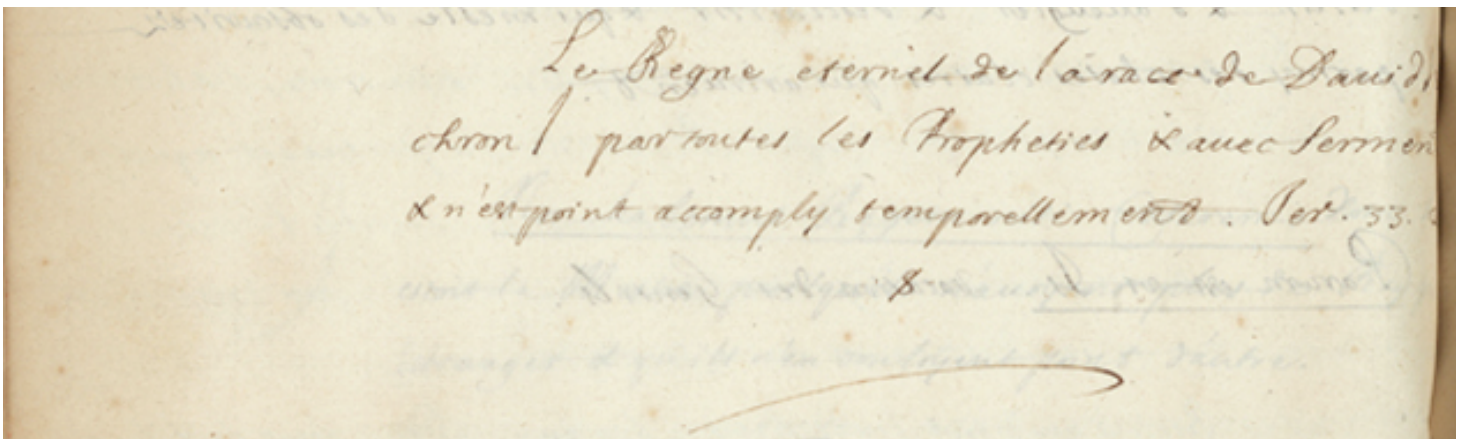 Le Regne eternel de la race de Dauid
chron / par toutes les Propheties & auec sermen
& n'est point accomply temporellement. Jer. 33.
8